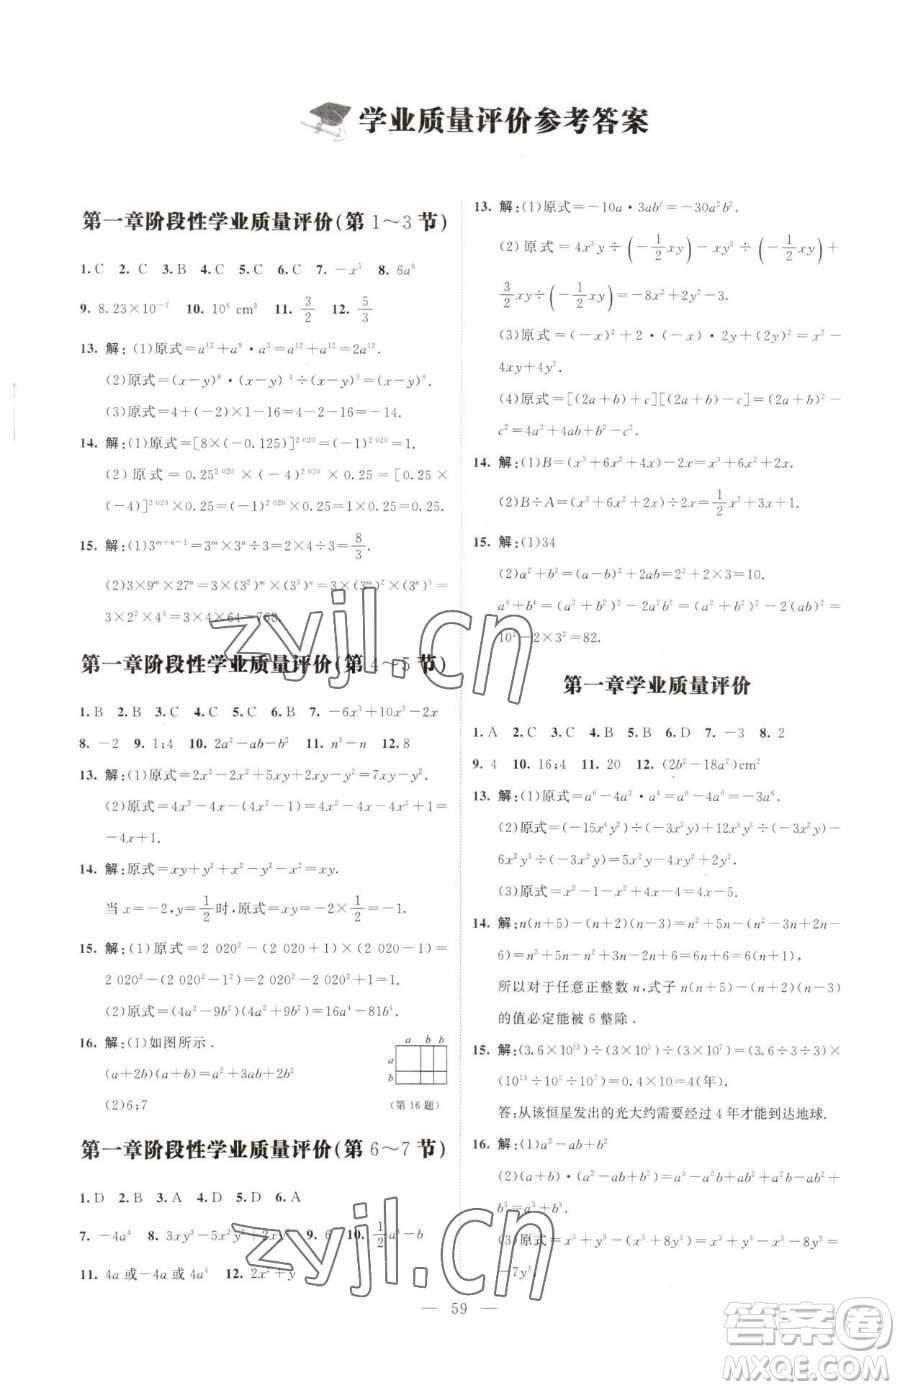 学业质量评价参考答案
第一章阶段性学业质量评价(第 1～3 节)
1. C 2. C 3. B 4. C 5. C 6. C 7. －x⁵ 8. 6a⁶
9. 8.23×10⁻⁷ 10. 10⁶ cm³ 11. 3/2 12. 5/3
13. 解:(1)原式＝a¹²＋a⁹·a³＝a¹²＋a¹²＝2a¹².
(2)原式＝(x－y)⁸·(x－y)⁴÷(x－y)⁶＝(x－y)⁶.
(3)原式＝4＋(－2)×1－16＝4－2－16＝－14.
14. 解:(1)原式＝[8×(－0.125)]²⁰²⁰＝(－1)²⁰²⁰＝1.
(2)原式＝0.25²⁰²⁰×(－4)²⁰²⁰×0.25＝[0.25×
(－4)]²⁰²⁰×0.25＝(－1)²⁰²⁰×0.25＝1×0.25＝0.25.
15. 解:(1)3ᵐ⁺ⁿ⁻¹＝3ᵐ×3ⁿ÷3＝2×4÷3＝8/3.
(2)3×9ᵐ×27ⁿ＝3×(3²)ᵐ×(3³)ⁿ＝3×(3ᵐ)²×(3ⁿ)³＝
3×2²×4³＝3×4×64＝768
第一章阶段性学业质量评价(第 4～5 节)
1. B 2. B 3. C 4. C 5. C 6. B 7. －6x³＋10x²－2x
8. －2 9. 1;4 10. 2a²－ab－b² 11. n³－n 12. 8
13. 解:(1)原式＝2x²－2x²－5xy＋2xy＋5xy＝7xy－xy.
(2)原式＝4x²－4x－(4x²－1)＝4x²－4x－4x²＋1＝
－4x＋1.
14. 解:原式＝xy＋y²＋x²－y²－x²＝xy.
当 x＝－2,y＝1/2时,原式＝－2×1/2＝－1.
15. 解:(1)原式＝2 020²－(2 020＋1)×(2 020－1)＝
2 020²－(2 020²－1²)＝2 020²－2 020²＋1＝1.
(2)原式＝(4a²－9b²)(4a²－9b²)＝16a⁴－72a²b²＋81b⁴.
16. 解:(1)如图所示.
(a＋2b)(a＋b)＝a²＋3ab＋2b²
(2)6;7
a b b
a
b
(第 16 题)
第一章阶段性学业质量评价(第 6～7 节)
1. D 2. B 3. A 4. D 5. D 6. A
7. －4a⁴ 8. 3xy³－5x²y²＋2xy 9. 6 10. 1/2a²－b
11. 4a 或－4a 或 4a⁴ 12. 2x²＋y
13. 解:(1)原式＝－10a·3ab²＝－30a²b².
(2)原式＝4x³y÷(－1/2xy)－xy³÷(－1/2xy)－
3/2xy÷(－1/2xy)＝－8x²＋2y²－3.
(3)原式＝(－x)²＋2·(－x)·2y＋(2y)²＝x²－
4xy＋4y².
(4)原式＝[(2a＋b)＋c][(2a＋b)－c]＝(2a＋b)²－
c²＝4a²＋4ab＋b²－c².
14. 解:(1)B＝(x³＋6x²＋4x)－2x＝x³＋6x²＋2x.
(2)B÷A＝(x³＋6x²＋2x)÷2x＝1/2x²＋3x＋1.
15. 解:(1)34
(2)a²＋b²＝(a－b)²＋2ab＝2²＋2×3＝10.
a⁴＋b⁴＝(a²＋b²)²－2a²b²＝(a²＋b²)²－2(ab)²＝
10²－2×3²＝82.
第一章学业质量评价
1. A 2. C 3. C 4. C 5. B 6. D 7. －3 8. 2
9. 4 10. 16;4 11. 20 12. (2b²－18a²)cm²
13. 解:(1)原式＝a⁶－4a²·a⁴＝a⁶－4a⁶＝－3a⁶.
(2)原式＝(－15x⁴y²)÷(－3x²y)＋12x²y³÷(－3x²y)－
6x²y²÷(－3x²y)＝5x²y－4y²＋2y.
(3)原式＝x²－1－x²－4x－4＝－4x－5.
14. 解:n(n＋5)－(n＋2)(n－3)＝n²＋5n－(n²－3n＋2n－
6)＝n²＋5n－n²＋n＋6＝6n＋6＝6(n＋1),
所以对于任意正整数 n,式子 n(n＋5)－(n＋2)(n－3)
的值必定能被 6 整除.
15. 解:(3.6×10¹³)÷(3×10⁵)÷(3×10⁷)＝(3.6÷3÷3)×
(10¹³÷10⁵÷10⁷)＝0.4×10＝4(年).
答:从该恒星发出的光大约需要经过 4 年才能到达地球.
16. 解:(1)a²－ab＋b²
(2)(a＋b)(a²－ab＋b²)＝a³－a²b＋ab²＋a²b－ab²＋
b³＝a³＋b³.
(3)原式＝x³＋y³－(x³＋8y³)＝x³＋y³－x³－8y³＝
－7y³.
59
zyjl.cn
zyjl.cn
答案圈
MXQE.COM